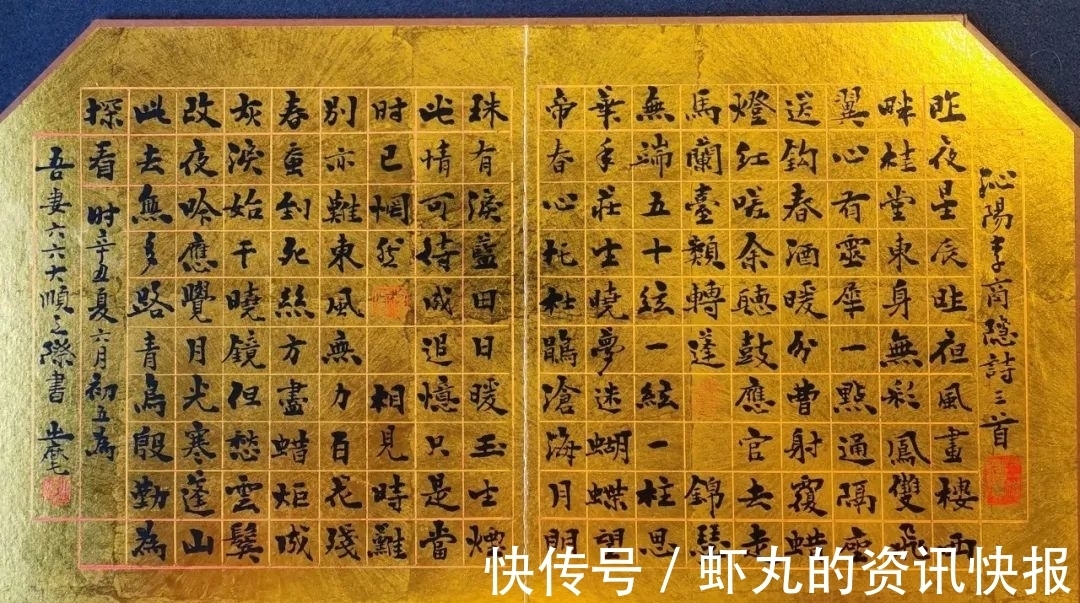 沁陽李商隱詩三首
昨夜星辰昨夜風畫樓西
畔桂堂東身無彩鳳雙飛
翼心有靈犀一點通隔座
送鈎春酒暖分曹射覆蜡
燈紅嗟余聽鼓應官去走
馬蘭臺類轉蓬 錦瑟
無端五十絃一絃一柱思
華年莊生曉夢迷蝴蝶望
帝春心托杜鵑滄海月明
珠有淚藍田日暖玉生煙
此情可待成追憶只是當
时已惘然 相見時難
別亦難東風無力百花殘
春蚕到死絲方盡蜡炬成
灰淚始干曉鏡但愁雲鬢
改夜吟應覺月光寒蓬山
此去無多路青鳥殷勤為
探看 时辛丑夏六月初五為
吾妻六六大順之際書
快传号 / 虾丸的资讯快报